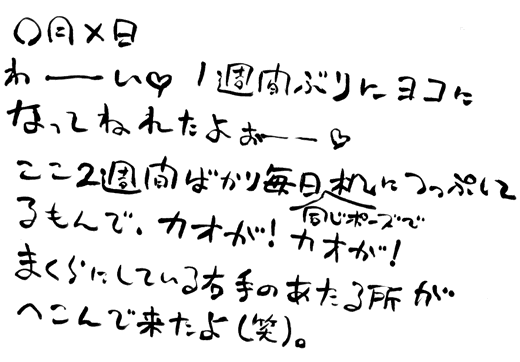 〇月×日
わーーい♡ 1週間ぶりにヨコに
なってねれたよぉーー♡
ここ2週間ばかり毎日机につっぷして
同じポーズで
るもんで、カオが!カオが!
まくらにしている右手のあたる所が
へこんで来たよ(笑)。